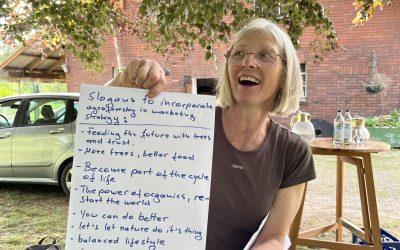 Slogans to incorporate
agroforestry in marketing
strategy:
- Feeding the future with trees
and trust.
- More trees, better food
- Become part of the cycle
of life
- The power of organics, re-
start the world
- You can do better
- let's let nature do it's thing
- balanced lifestyle
ESPRIT